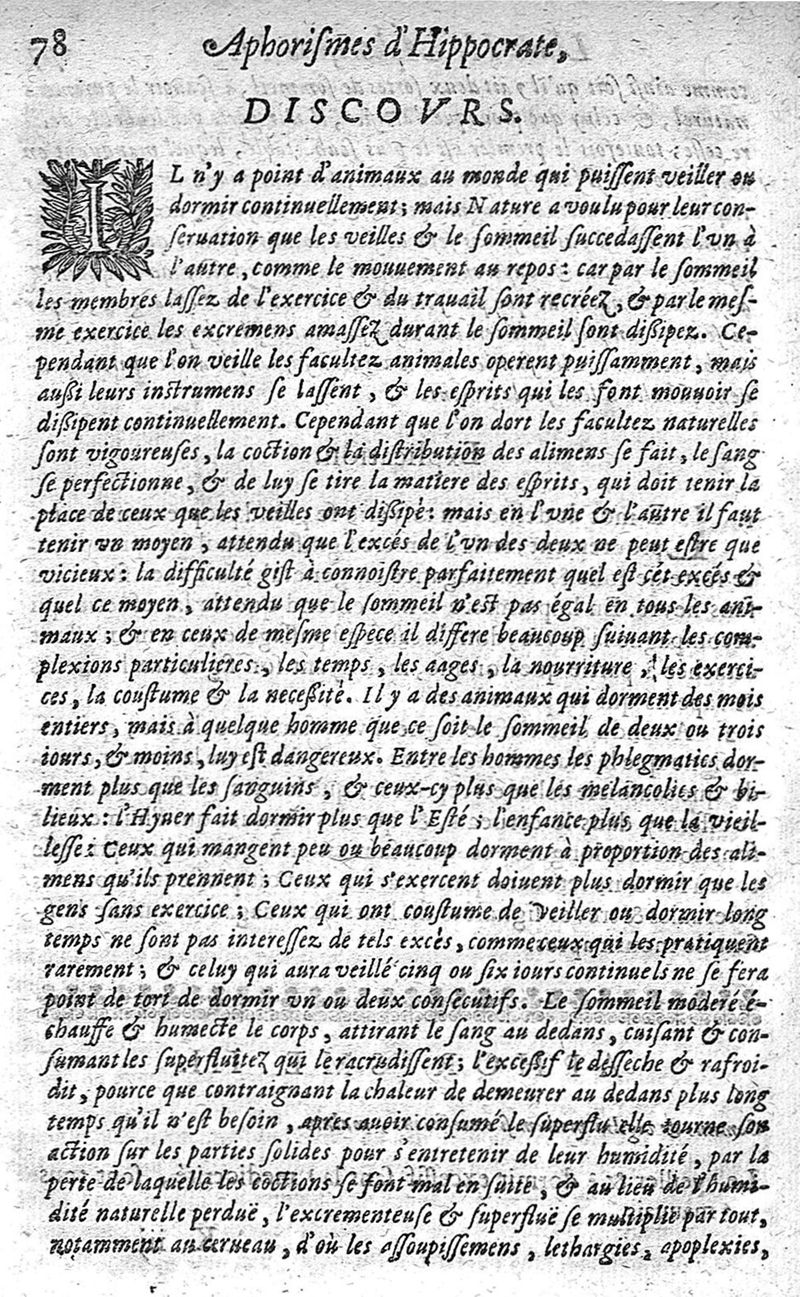 78 Aphoriſmes d'Hippocrate,
DISCOVRS.
IL n'y a point d'animaux au monde qui puiſſent veiller ou
dormir continuellement ; mais Nature a voulu pour leur con-
ſeruation que les veilles & le ſommeil ſuccedaſſent l'vn à
l'autre, comme le mouuement au repos : car par le ſommeil
les membres laſſez de l'exercice & du trauail ſont recréez, & par le meſ-
me exercice les excremens amaſſez durant le ſommeil ſont diſſipez. Ce-
pendant que l'on veille les facultez animales operent puiſſamment, mais
auſſi leurs inſtrumens ſe laſſent, & les eſprits qui les font mouuoir ſe
diſſipent continuellement. Cependant que l'on dort les facultez naturelles
ſont vigoureuſes, la coction & la diſtribution des alimens ſe fait, le ſang
ſe perfectionne, & de luy ſe tire la matiere des eſprits, qui doit tenir la
place de ceux que les veilles ont diſſipé : mais en l'vne & l'autre il faut
tenir vn moyen, attendu que l'excés de l'vn des deux ne peut eſtre que
vicieux : la difficulté giſt à connoiſtre parfaitement quel eſt cét excés &
quel ce moyen, attendu que le ſommeil n'eſt pas égal en tous les ani-
maux ; & en ceux de meſme eſpece il differe beaucoup ſuiuant les com-
plexions particulieres, les temps, les aages, la nourriture, les exerci-
ces, la couſtume & la neceſſité. Il y a des animaux qui dorment des mois
entiers, mais à quelque homme que ce ſoit le ſommeil de deux ou trois
iours, & moins, luy eſt dangereux. Entre les hommes les phlegmatics dor-
ment plus que les ſanguins, & ceux-cy plus que les melancolics & bi-
lieux : l'Hyuer fait dormir plus que l'Eſté ; l'enfance plus que la vieil-
leſſe : Ceux qui mangent peu ou beaucoup dorment à proportion des ali-
mens qu'ils prennent ; Ceux qui s'exercent doiuent plus dormir que les
gens ſans exercice ; Ceux qui ont couſtume de veiller ou dormir long
temps ne ſont pas intereſſez de tels excés, comme ceux qui les pratiquent
rarement ; & celuy qui aura veillé cinq ou ſix iours continuels ne ſe fera
point de tort de dormir vn ou deux conſecutifs. Le ſommeil moderé é-
chauffe & humecte le corps, attirant le ſang au dedans, cuiſant & con-
ſumant les ſuperfluitez qui le racrudiſſent ; l'exceſſif le deſſeche & rafroi-
dit, pource que contraignant la chaleur de demeurer au dedans plus long
temps qu'il n'eſt beſoin, apres auoir conſumé le ſuperflu elle tourne ſon
action ſur les parties ſolides pour s'entretenir de leur humidité, par la
perte de laquelle les coctions ſe font mal en ſuite, & au lieu de l'humi-
dité naturelle perduë, l'excrementeuſe & ſuperfluë ſe multiplie par tout,
notamment au cerueau, d'où les aſſoupiſſemens, lethargies, apoplexies,